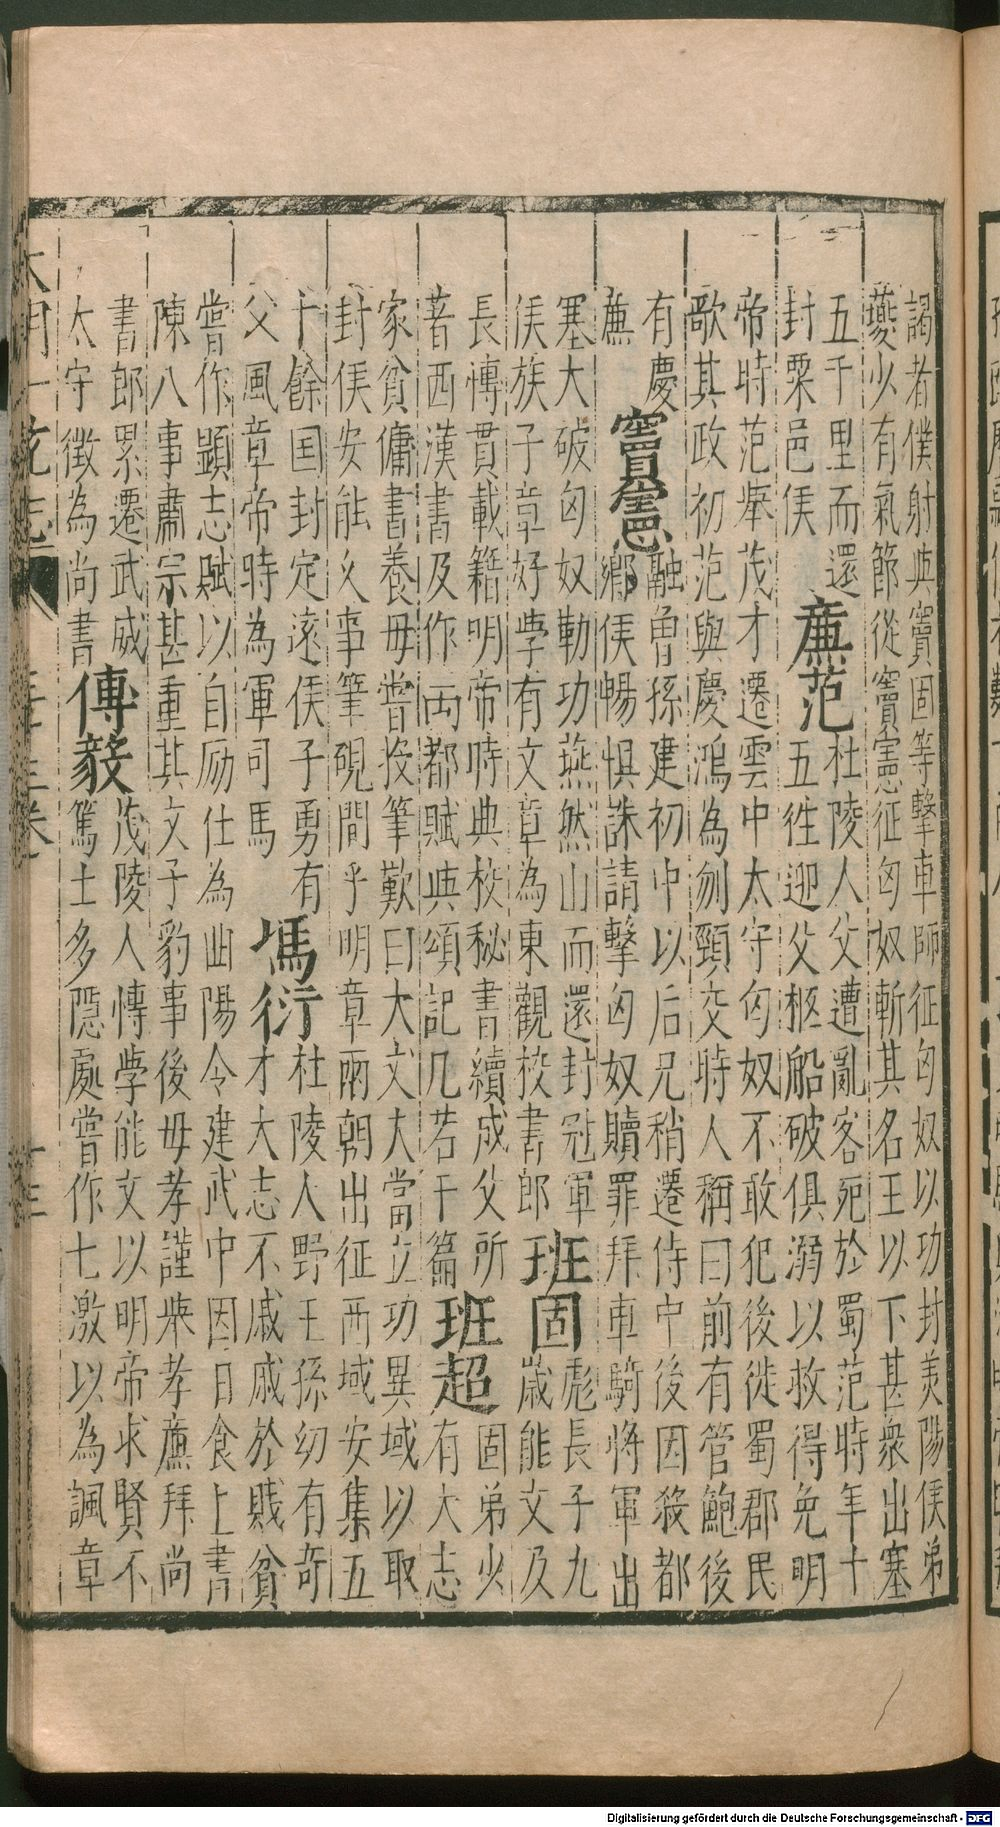 謁者僕射典竇固等擊車師征匈奴以功封美陽侯弟
夔少有氣節從竇憲征匈奴斬其名王以下甚衆出塞
五千里而還
封粟邑侯
廉范
杜陵人父遭亂客死於蜀范時年十
五徃迎父柩船破俱溺以救得免明
帝時范舉茂才遷雲中太守匈奴不敢犯後徙蜀郡民
歌其政初范與慶鴻為刎頸交時人稱曰前有管鮑後
有慶
廉
竇憲
融曽孫建初中以后兄稍遷侍中後因殺都
鄉侯暢惧誅請擊匈奴贖罪拜車騎將軍出
塞大破匈奴勒功燕然山而還封冠軍
侯族子章好學有文章為東觀校書郎
班固
彪長子九
歲能文及
長愽貫載籍明帝時典校秘書續成父所
著西漢書及作両都賦典頌記凡若干篇
班超
固弟少
有大志
家貧傭書養母嘗投筆歎曰大丈夫當立功異域以取
封侯安能乆事筆硯間乎明章兩朝出征西域安集五
十餘国封定遠侯子勇有
父風章帝時為軍司馬
馮衍
杜陵人野王孫幼有奇
才大志不戚戚於賤貧
嘗作顕志賦以自励仕為曲陽令建武中因日食上書
陳八事肅宗甚重其文子豹事後母孝謹舉孝廉拜尚
書郎累遷武威
太守徵為尚書
傅毅
茂陵人愽學能文以明帝求賢不
篤士多隠處嘗作七激以為諷章
Digitalisierung gefördert durch die Deutsche Forschungsgemeinschaft - DFG